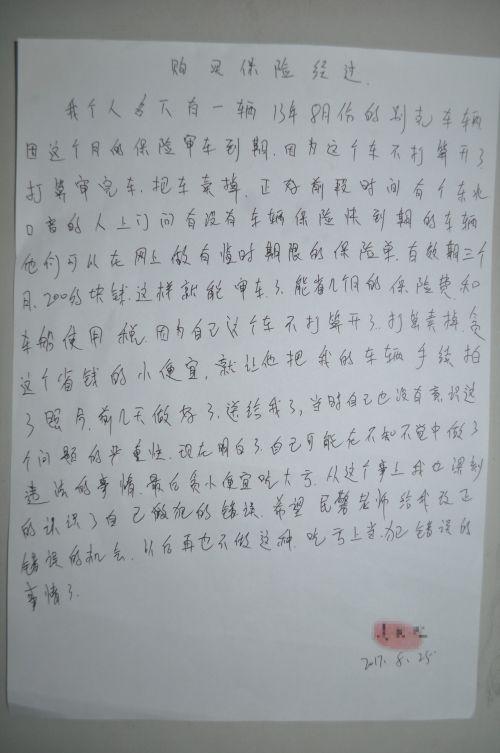 购买保险经过.
我个人名下有一辆13年8月份的别克车辆
因这个月的保险审车到期.因为这个车不打算开了
打算审完车.把车卖掉.正好前段时间有个东北
口音的人上门问有没有车辆保险快到期的车辆
他们可以在网上做有临时期限的保险单.有效期三个
月.200多块钱.这样就能审车了.能省几个月的保险费.和
车船使用税.因为自己这个车不打算开了.打算卖掉贪
这个省钱的小便宜.就让他把我的车辆手续拍
了照片.前几天做好了.送给我了,当时自己也没有意识这
个问题的严重性.现在明白了.自己可能在不知不觉中做了
违法的事情.最后贪小便宜吃大亏.从这个事上我也深刻
的认识了自己做犯的错误.希望民警老师给我改正
错误的机会.以后再也不做这种.吃亏上当.犯错误的
事情了.
2017.8.25